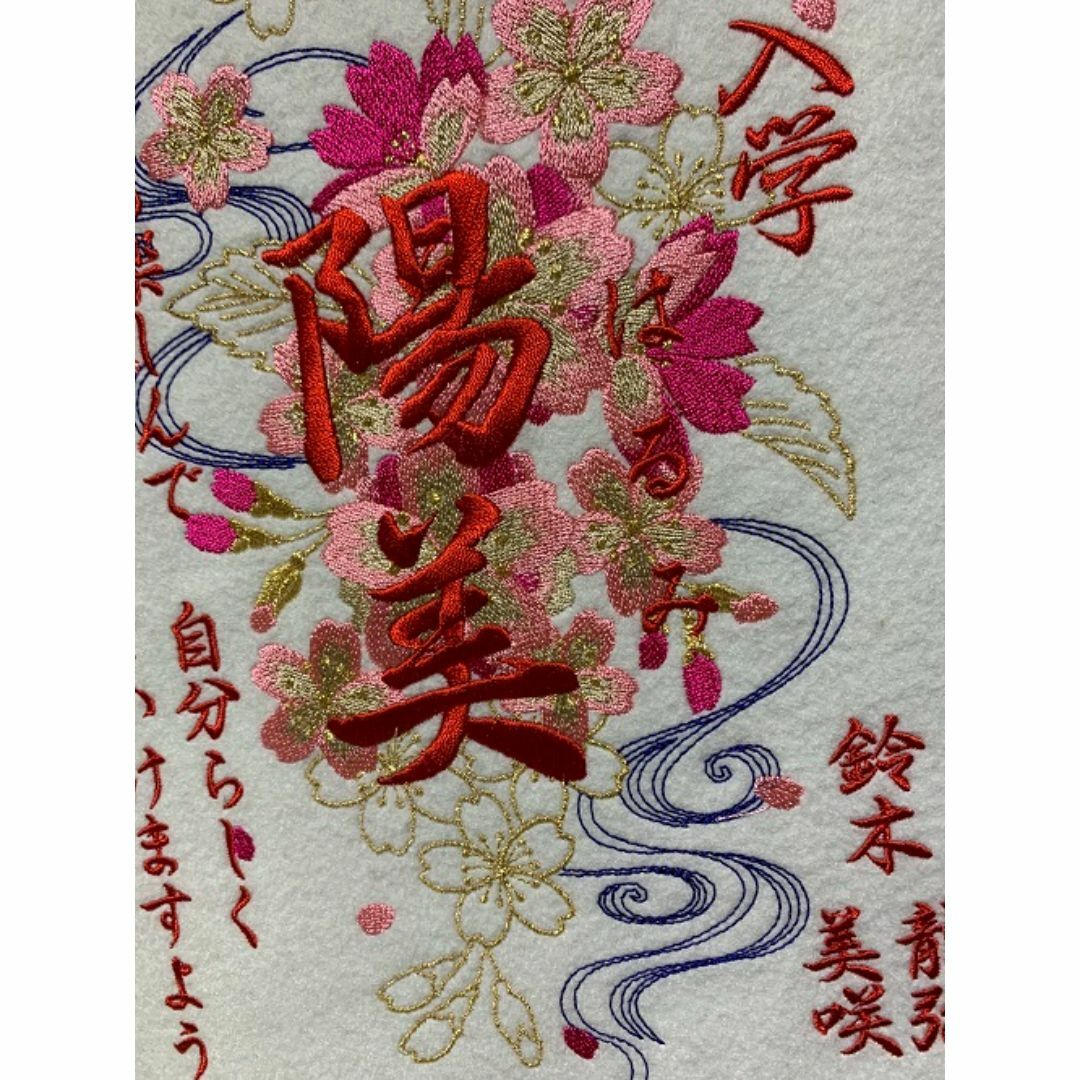 入学
はるみ
陽美
楽しんで
自分らしく
けますよう
鈴木
美咲